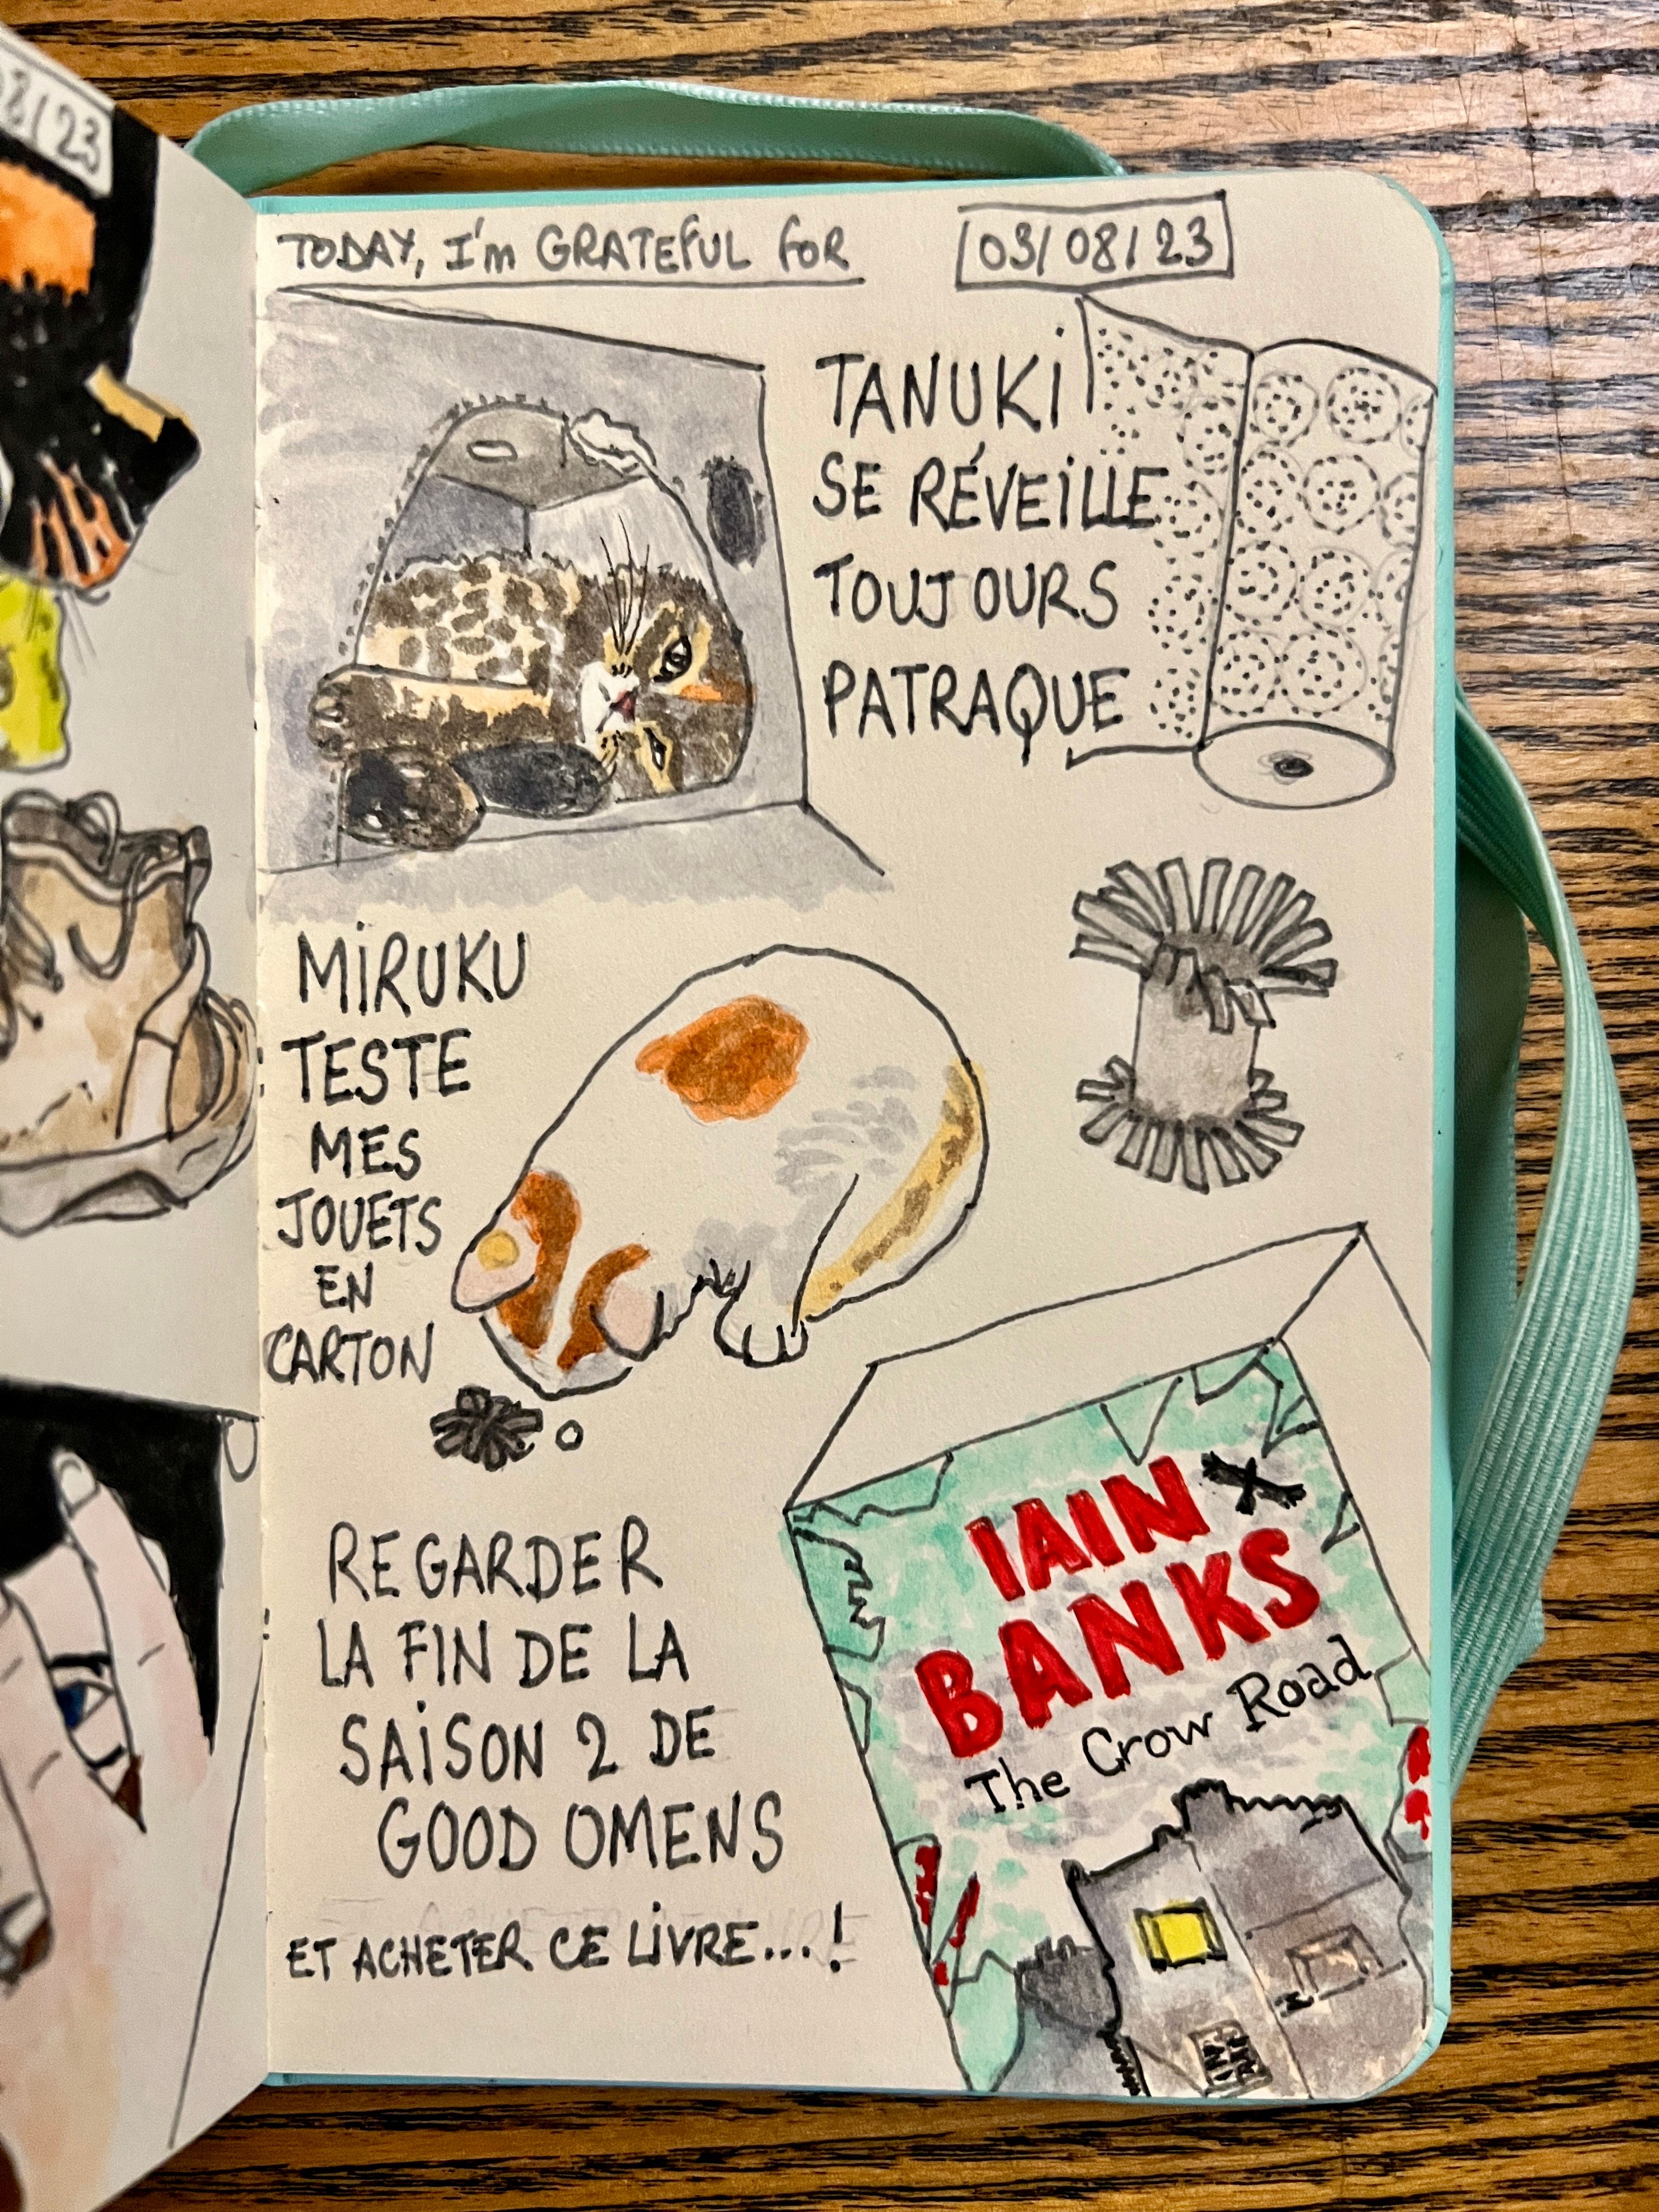 08/23
TODAY, I'm GRATEFUL FOR
03/08/23
TANUKI
SE RÉVEILLE
TOUJOURS
PATRAQUE
MIRUKU
TESTE
MES
JOUETS
EN
CARTON
REGARDER
LA FIN DE LA
SAISON 2 DE
GOOD OMENS
ET ACHETER CE LIVRE...!
IAIN
BANKS
The Crow Road